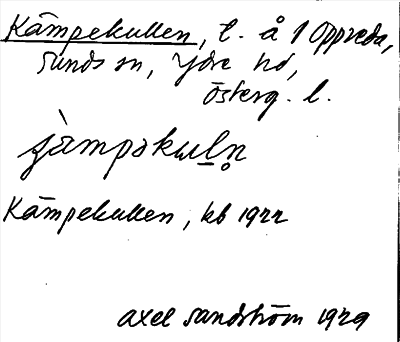 Kämpekullen, t. å 1 Oppreda,
Sunds sn, Ydre hd,
Österg. l.
jàmpəkulṇ
Kämpekullen, kb 1922
Axel Sandström 1929